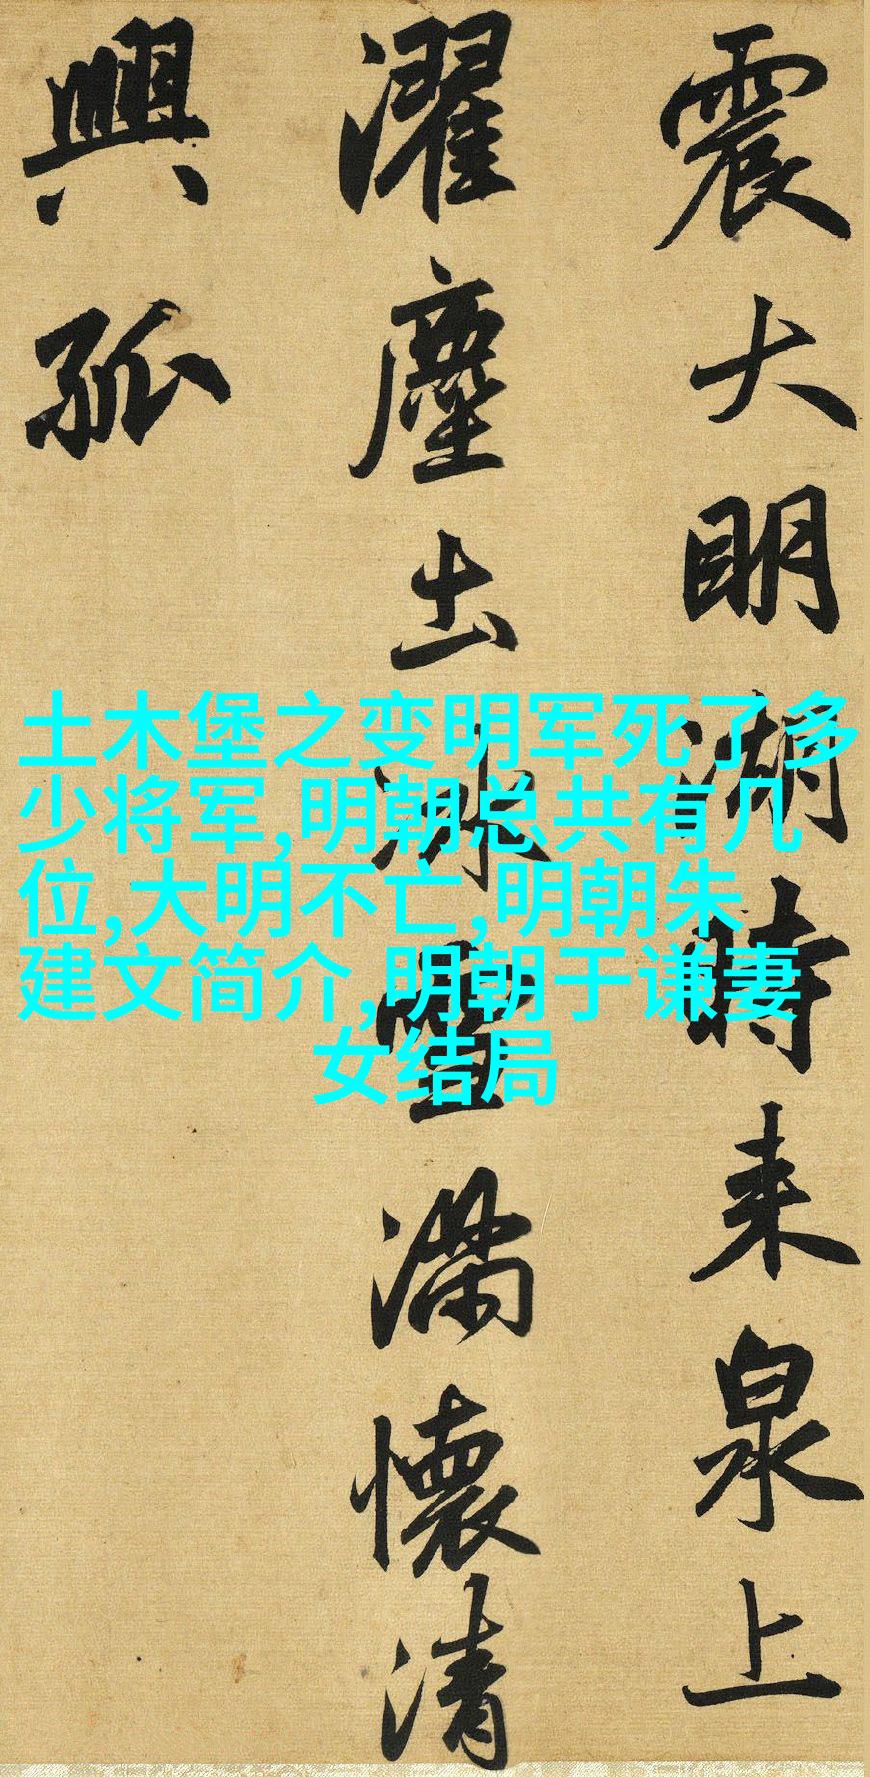 震大明湖時来泉上
濯塵出冰雪滿懷清
興孤
土木堡之变明军死了多
少将军,明朝总共有几
位,大明不亡,明朝朱
建文简介,明朝于谦妻
女结局